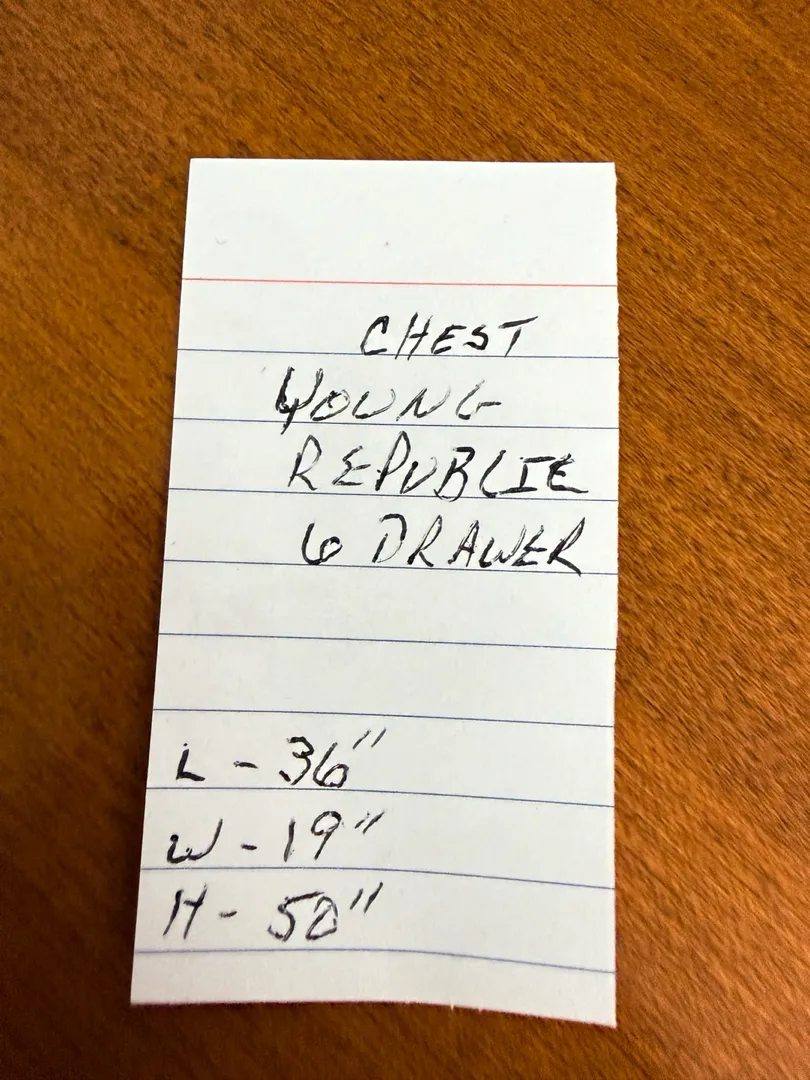 CHEST
YOUNG
REPUBLIE
6 DRAWER
L - 36"
W - 19"
H - 52"